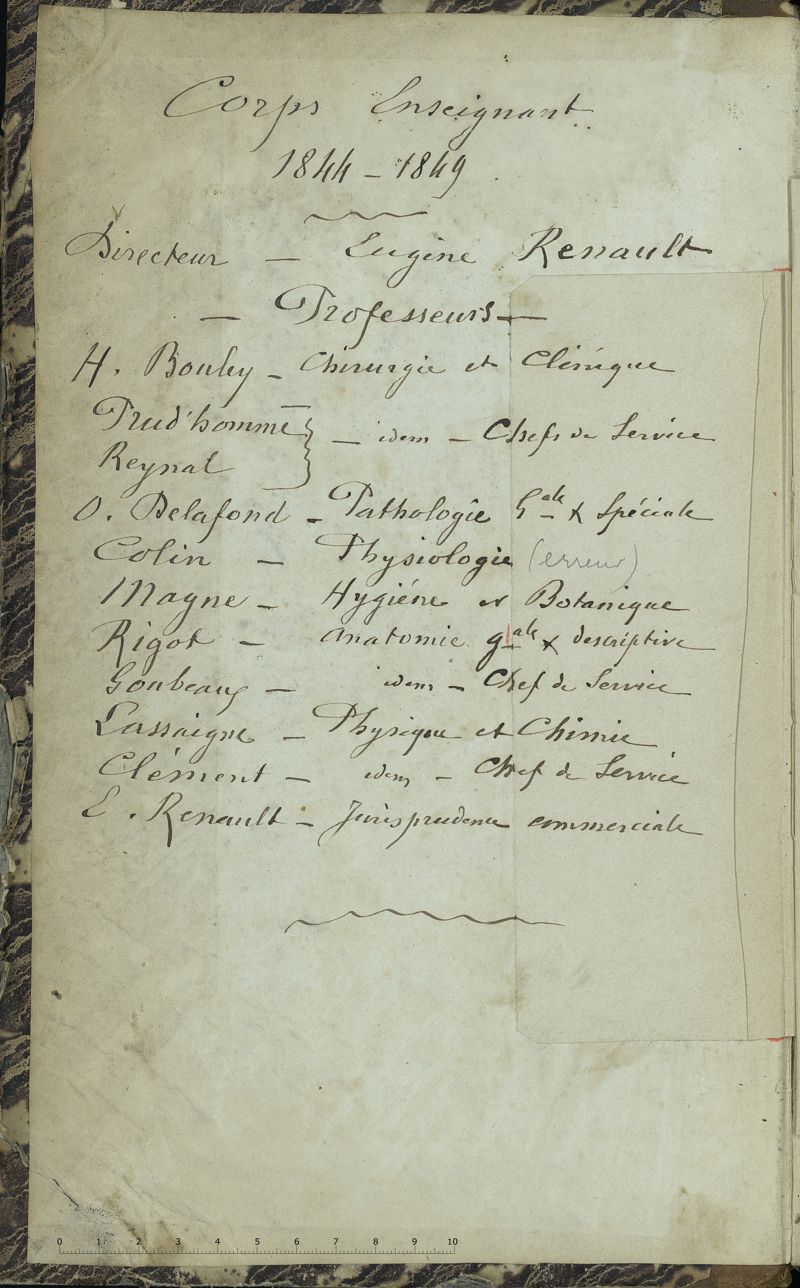 Corps Enseignant
1844 - 1849
Directeur - Eugène Renault
- Professeurs -
H. Bouley - Chirurgie et Clinique
Prud'homme } - idem - Chefs de Service
Reynal
O. Delafond - Pathologie Gale & Spéciale
Colin - Physiologie (erreur)
Magne - Hygiène et Botanique
Rigot - Anatomie gale & descriptive
Goubeaux - idem - Chef de Service
Lassaigne - Physique et Chimie
Clément - idem - Chef de Service
E. Renault - Jurisprudence commerciale
0 1 2 3 4 5 6 7 8 9 10